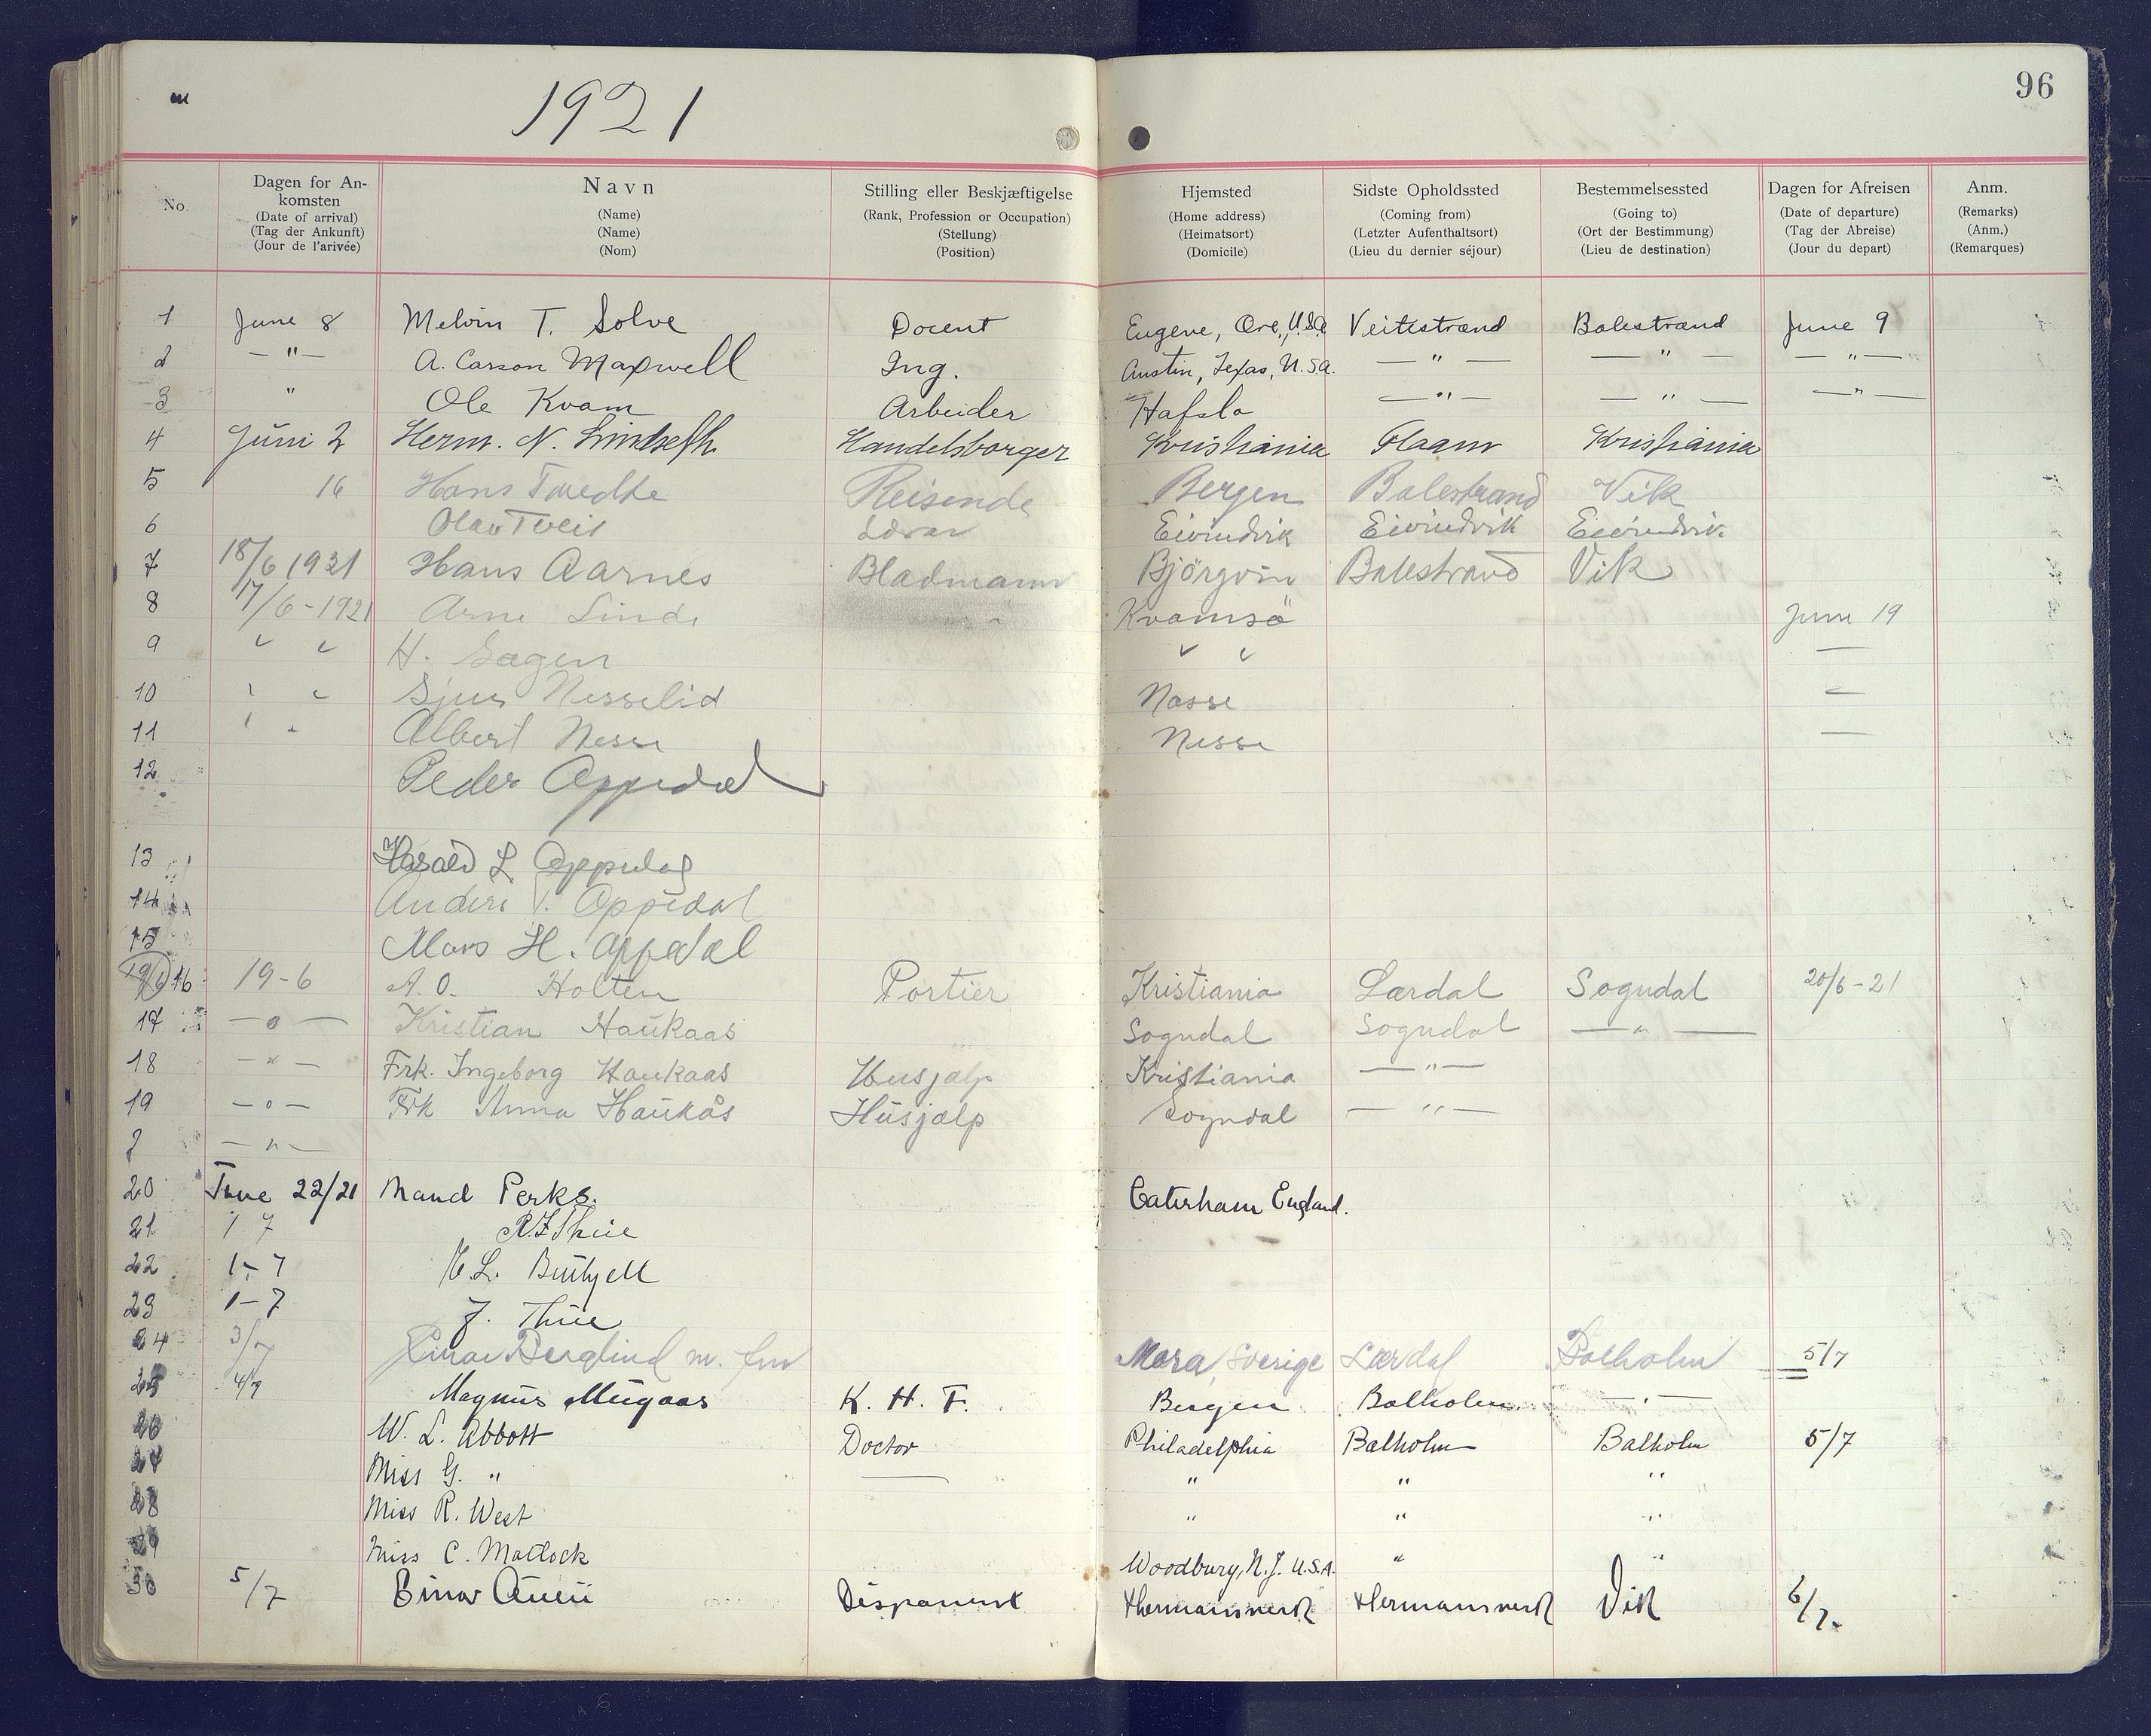 1921
96
No. Dagen for An- Navn Stilling eller Beskjæftigelse Hjemsted Sidste Opholdssted Bestemmelsessted Dagen for Afreisen Anm.
komsten
(Date of arrival) (Name) (Rank, Profession or Occupation) (Home address) (Coming from) (Going to) (Date of departure) (Remarks)
(Tag der Ankunft) (Name) (Stellung) (Heimatsort) (Letzter Aufenthaltsort) (Ort der Bestimmung) (Tag der Abreise) (Anm.)
(Jour de l'arivée) (Nom) (Position) (Domicile) (Lieu du dernier séjour) (Lieu de destination) (Jour du depart) (Remarques)
1 June 8 Melvin T. Solve Docent Eugene, Ore., U.S.A. Veitestrand Balestrand June 9
2 — " — A. Carson Maxwell Ing. Austin, Texas, U.S.A. — " — — " — — " —
3 " Ole Kvam Arbeider Hafslo — " — — " — — " —
4 Juni 2 Herm. N. Handelsborger Kristiania Flaam Kristiania
5 16 Hans Tvedte Reisende Bergen Balestrand Vik
6 Olav Tveit Lærar Eivindvik Eivindvik Eivindvik
7 18/6 1921 Hans Aarnes Bladmann Björgvin Balestrand Vik
8 17/6-1921 Arne Linde Kvamsö June 19
9 " " H. Sagen " " —
10 " " Sjur Nesselid Nesse —
11 " " Albert Nesse Nesse —
12 Peder Oppedal
13 Harald L. Oppedal
14 Anders T. Oppedal
15 Mons H. Oppedal
16 19-6 A. O. Holten Portier Kristiania Lærdal Sogndal 20/6-21
17 — o — Kristian Haukaas Sogndal Sogndal — " —
18 — " — Frk. Ingeborg Haukaas Husjalp Kristiania — " —
19 — o — Frk Anna Haukås Husjælp Sogndal — " —
— " —
20 June 22/21 Maud Perks. Caterham England.
21 1 7 Thue
22 1-7
23 1-7 J. Thue
24 3/7 Einar Berglind m. fru Mora, Sverige Lærdal Balholm 5/7
25 4/7 Magnus Mugaas K. H. F. Bergen Balholm — " —
26 W. L. Abbott Doctor Philadelphia Balholm Balholm 5/7
27 Miss G. " — " " "
28 Miss R. West " " "
29 Miss C. Matlock Woodbury, N.J. U.S.A. " "
30 5/7 Einar Disponent Hermansverk Hermansverk Vik 6/7.